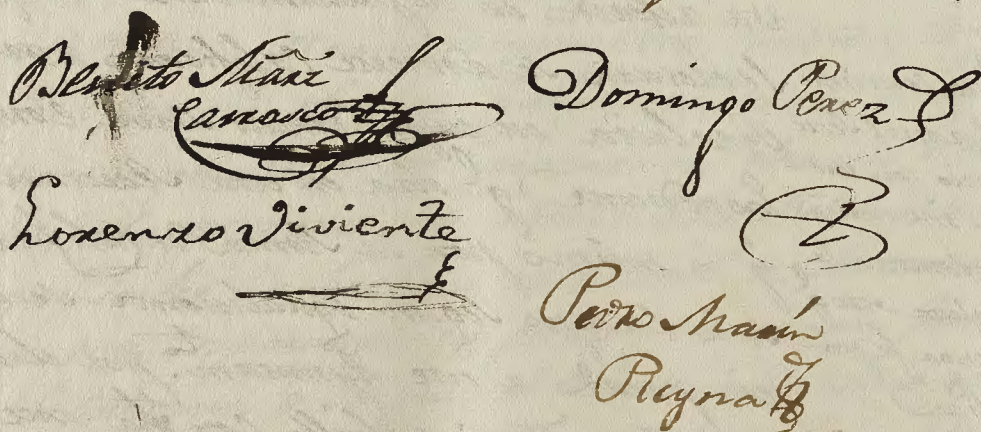 Benito Mañz
Carrasco
Lorenzo Viviente
Domingo Perez
Pedro Marín
Reyna